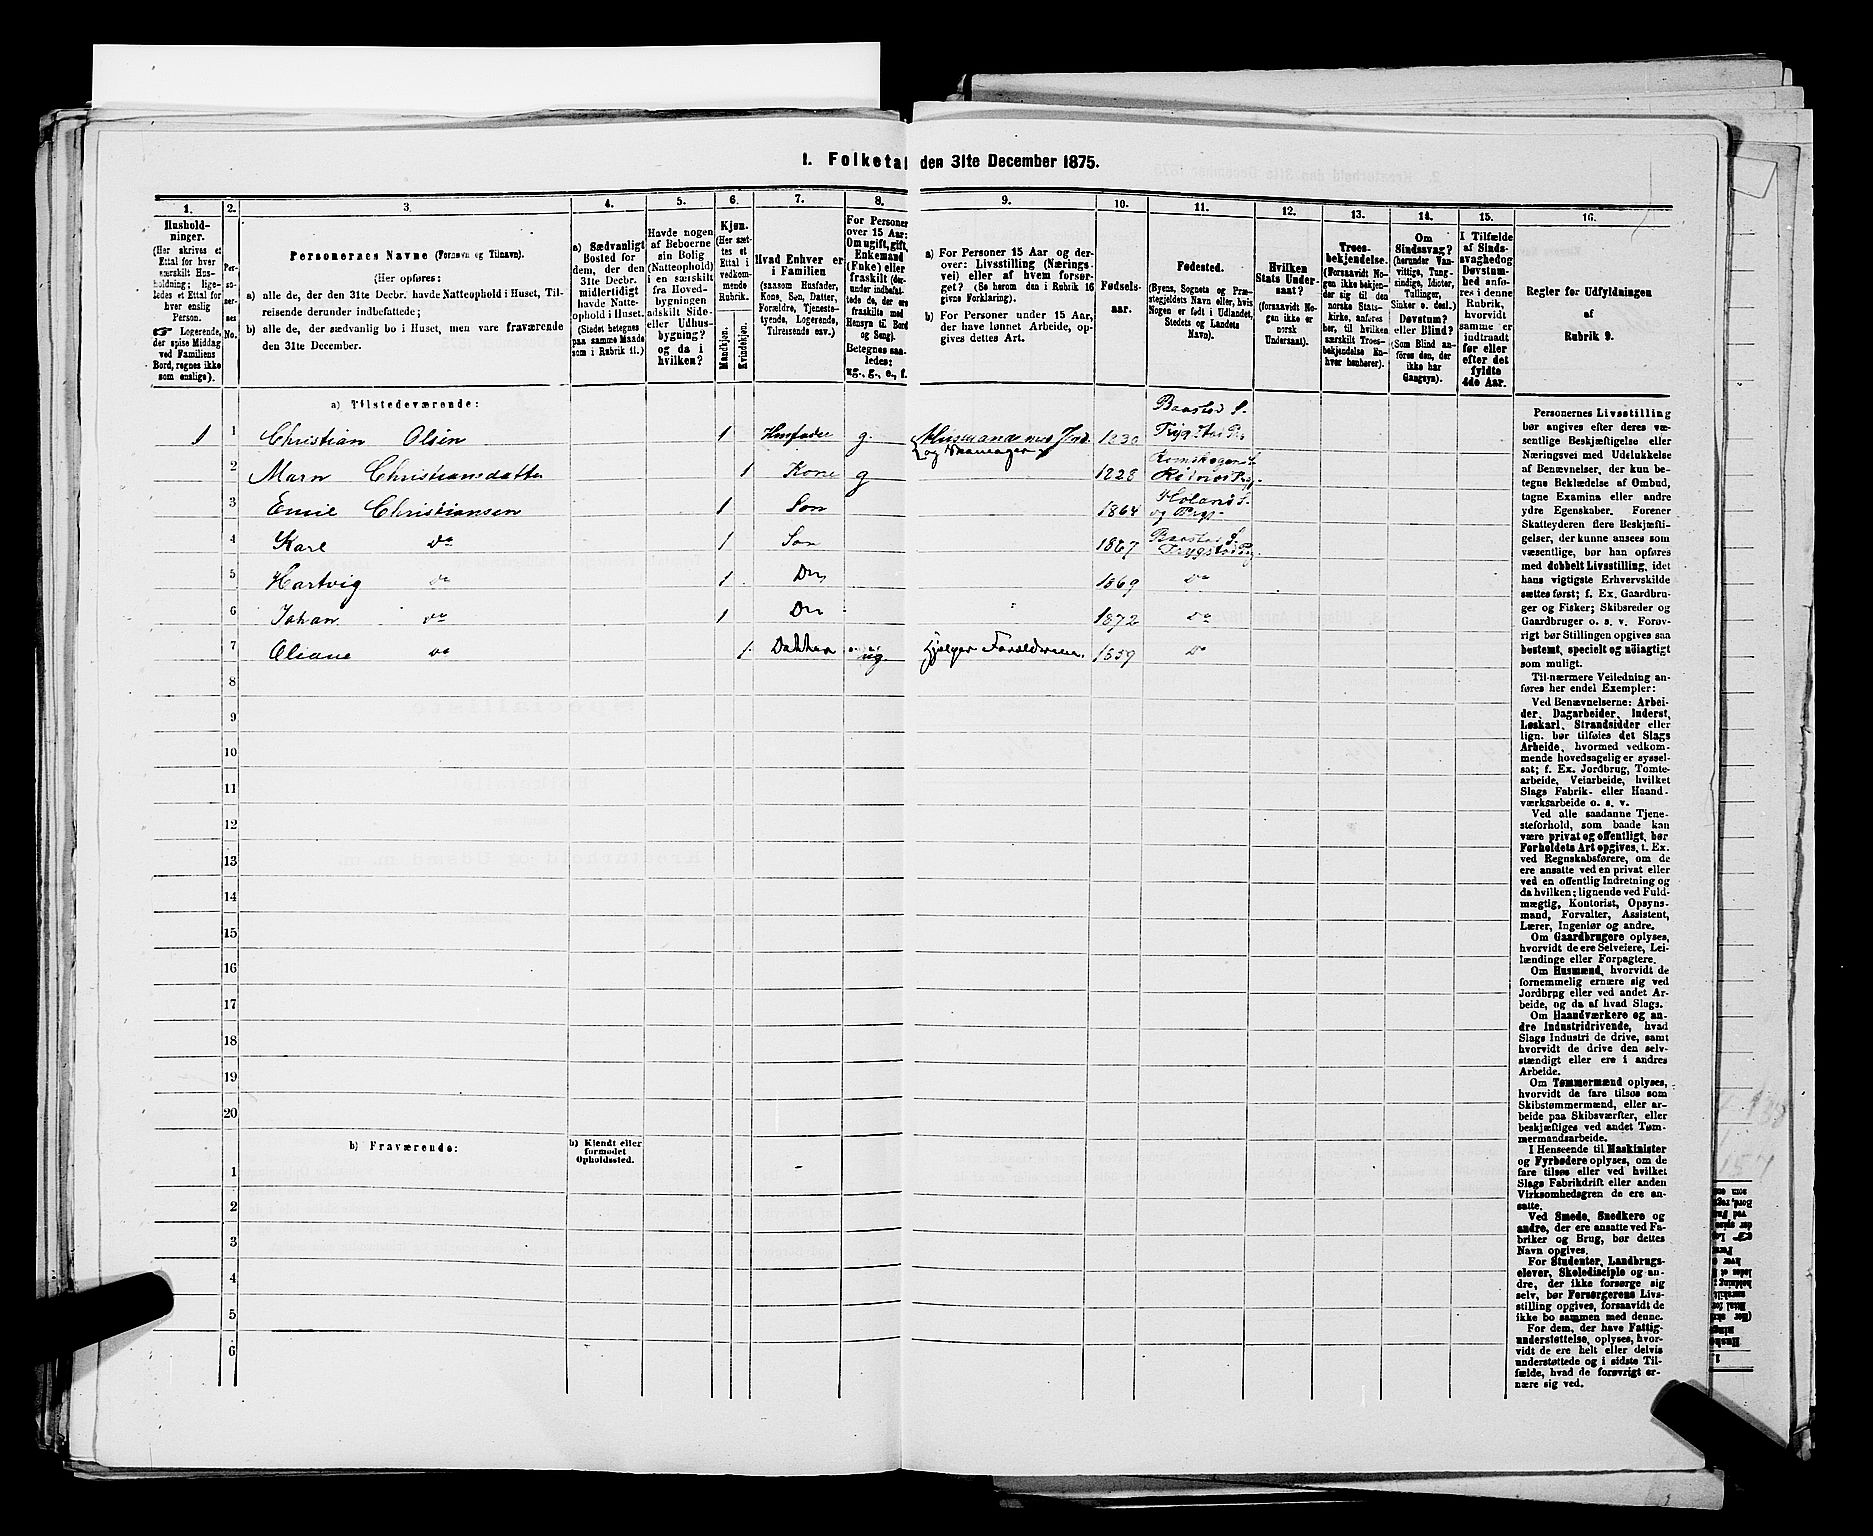 I. Folketal den 31te December 1875.
1.
2.
3.
4.
5.
6.
7.
8.
9.
10.
11.
12.
13.
14.
15.
16.
Hushold-
ninger.
(Her skrives et
Ettal for hver
særskilt Hus-
holdning; lige-
ledes et Ettal for
hver enslig
Person.
☞ Logerende,
der spise Middag
ved Familiens
Bord, regnes ikke
som enslige).
Per-
so-
ner-
nes
No.
Personernes Navne (Fornavn og Tilnavn).
(Her opføres:
a) alle de, der den 31te Decbr. havde Natteophold i Huset, Til-
reisende derunder indbefattede;
b) alle de, der sædvanlig bo i Huset, men vare fraværende
den 31te December.
a) Sædvanligt
Bosted for
dem, der den
31te Decbr.
midlertidigt
havde Natte-
ophold i Huset.
(Stedet betegnes
paa samme Maade
som i Rubrik 11.)
Havde nogen
af Beboerne
sin Bolig
(Natteophold)
i en særskilt
fra Hoved-
bygningen
adskilt Side-
eller Udhus-
bygning?
og da i
hvilken?
Kjøn.
(Her sæt-
tes et
Ettal i
vedkom-
mende
Rubrik.
Mandkjøn.
Kvindekjøn.
Hvad Enhver er
i Familien
(saasom Husfader,
Kone, Søn, Datter,
Forældre, Tjeneste-
tyende, Logerende,
Tilreisende osv.)
For Personer
over 15 Aar:
Om ugift, gift,
Enkemand
(Enke) eller
fraskilt (der-
under indbefat-
tede de, der ere
fraskilte med
Hensyn til Bord
og Seng).
Betegnes saa-
ledes:
ug., g., e., f.
a) For Personer 15 Aar og der-
over: Livsstilling (Nærings-
vei) eller af hvem forsør-
get? (Se herom den i Rubrik 16
givne Forklaring).
b) For Personer under 15 Aar,
der have lønnet Arbeide, op-
gives dettes Art.
Fødsels-
aar.
Fødested.
(Byens, Sognets og Præ-
stegjeldets Navn eller, hvis
Nogen er født i Udlandet,
Stedets og Landets
Navn).
Hvilken
Stats Under-
saat?
(forsaavidt No-
gen ikke er
norsk
Undersaat).
Troes-
bekjendelse.
(Forsaavidt No-
gen ikke bekjen-
der sig til den
norske Stats-
kirke, anføres
her, til hvilken
særskilt Troes-
bekjendelse En-
hver henhører).
Om
Sindssvag?
(herunder Van-
vittige, Tung-
sindige, Idioter,
Tullinger,
Sinker o. desl.)
Døvstum?
eller Blind?
(Som Blind an-
føres den, der
ikke har
Gangsyn).
I Tilfælde
af Sinds-
svaghed og
Døvstum-
hed anfø-
res i denne
Rubrik,
hvorvidt
samme er
indtraadt
før eller
efter det
fyldte
4de Aar.
Regler for Udfyldningen
af
Rubrik 9.
a) Tilstedeværende:
1 1 Christian Olsen 1 Husfader g. Husmande med Jord 1830 Baastad S. Trygstad
2 Maren Christiansdatter 1 Kone g 1828
3 Emil Christiansen 1 Søn 1864 Høland S. og Prgj.
4 Karl Do 1 Søn 1867 Baastad S. Trygstad
5 Hartvig Do 1 Do 1869 Do
6 Johan Do 1 Do 1872 Do
7 Oliane Do 1 Datter ug. hjelper Forældrene 1859 Do
8
9
10
11
12
13
14
15
16
17
18
19
20
b) Fraværende:
b) Kjendt eller
formodet
Opholdssted.
1
2
3
4
5
6
Personernes Livsstilling
bør angives efter deres væ-
sentlige Beskjæftigelse eller
Næringsvei med Udelukkelse
af Benævnelser, der kun be-
tegne Beklædelse af Ombud,
tagne Examina eller andre
ydre Egenskaber. Forener
Skatteyderen flere Beskjæfti-
gelser, der kunne ansees som
væsentlige, bør han opføres
med dobbelt Livsstilling, idet
hans vigtigste Erhvervskilde
sættes først; f. Ex. Gaardbru-
ger og Fisker; Skibsreder og
Gaardbruger o. s. v. Forøv-
rigt bør Stillingen opgives saa
bestemt, specielt og nöiagtigt
som muligt.
Til nærmere Veiledning an-
føres her endel Exempler:
Ved Benævnelserne: Arbei-
der, Dagarbeider, Inderst,
Løskarl, Strandsidder eller
lign. bør tilføies det Slags
Arbeide, hvormed vedkom-
mende hovedsagelig er syssel-
sat; f. Ex. Jordbrug, Tomte-
arbeide, Veiarbeide, hvilket
Slags Fabrik- eller Haand-
værksarbeide o. s. v.
Ved alle saadanne Tjene-
steforhold, som baade kan
være privat og offentligt, bør
Forholdets Art opgives, f. Ex.
ved Regnskabsførere, om de
ere ansatte ved en privat eller
ved en offentlig Indretning og
da hvilken; lignende ved Fuld-
mægtig, Kontorist, Opsyns-
mand, Forvalter, Assistent,
Lærer, Ingeniør og andre.
Om Gaardbrugere oplyses,
hvorvidt de ere Selveiere, Lei-
lændinge eller Forpagtere.
Om Husmænd, hvorvidt de
fornemmelig ernære sig ved
Jordbrug eller ved andet Ar-
beide, og da af hvad Slags.
Om Haandværkere og an-
dre Industridrivende, hvad
Slags Industri de drive, samt
hvorvidt de drive den selv-
stændigt eller ere i andres
Arbeide.
Om Tømmermænd oplyses,
hvorvidt de fare tilsøs som
Skibstømmermænd, eller ar-
beide paa Skibsværfter, eller
beskjæftiges ved andet Tøm-
mermandsarbeide.
I Henseende til Maskinister
og Fyrbødere oplyses, om de
fare tilsøs eller ved hvilket
Slags Fabrikdrift eller anden
Virksomhedsgren de ere an-
satte.
Ved Smede, Snedkere og
andre, der ere ansatte ved Fa-
briker og Brug, bør dettes
Navn opgives.
For Studenter, Landbrugs-
elever, Skoledisciple og an-
dre, der ikke forsørge sig
selv, bør Forsørgerens Livs-
stilling opgives, forsaavidt de
ikke bo sammen med denne.
For dem, der have Fattig-
understøttelse, oplyses, hvor-
vidt de ere helt eller delvis
understøttede og i sidste Til-
fælde, hvad de forøvrigt er-
nære sig ved.